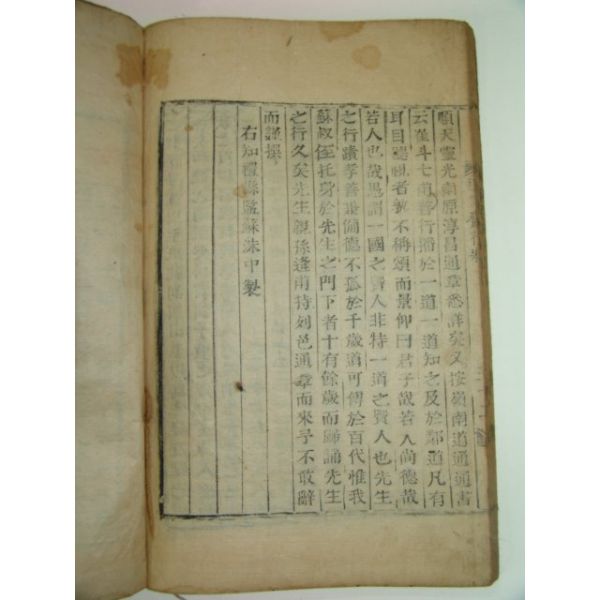 順天靈光南原淳昌通章悉詳矣又按嶺南道通書
云崔斗七甫善行播於一道一道知之及於鄰道凡有
耳目聽視者孰不稱頌而景仰曰君子哉若人尚德哉
若人也哉愚謂一國之賢人非特一道之賢人也先生
之行蹟孝善兼備德不孤於千歲道可傳於百代惟我
蘇叔侄托身於先生之門下者十有餘歲而歸誦先生
之行久矣先生親孫逢甫特列邑通章而來予不敢辭
而謹撰
右知禮縣監蘇洙中製